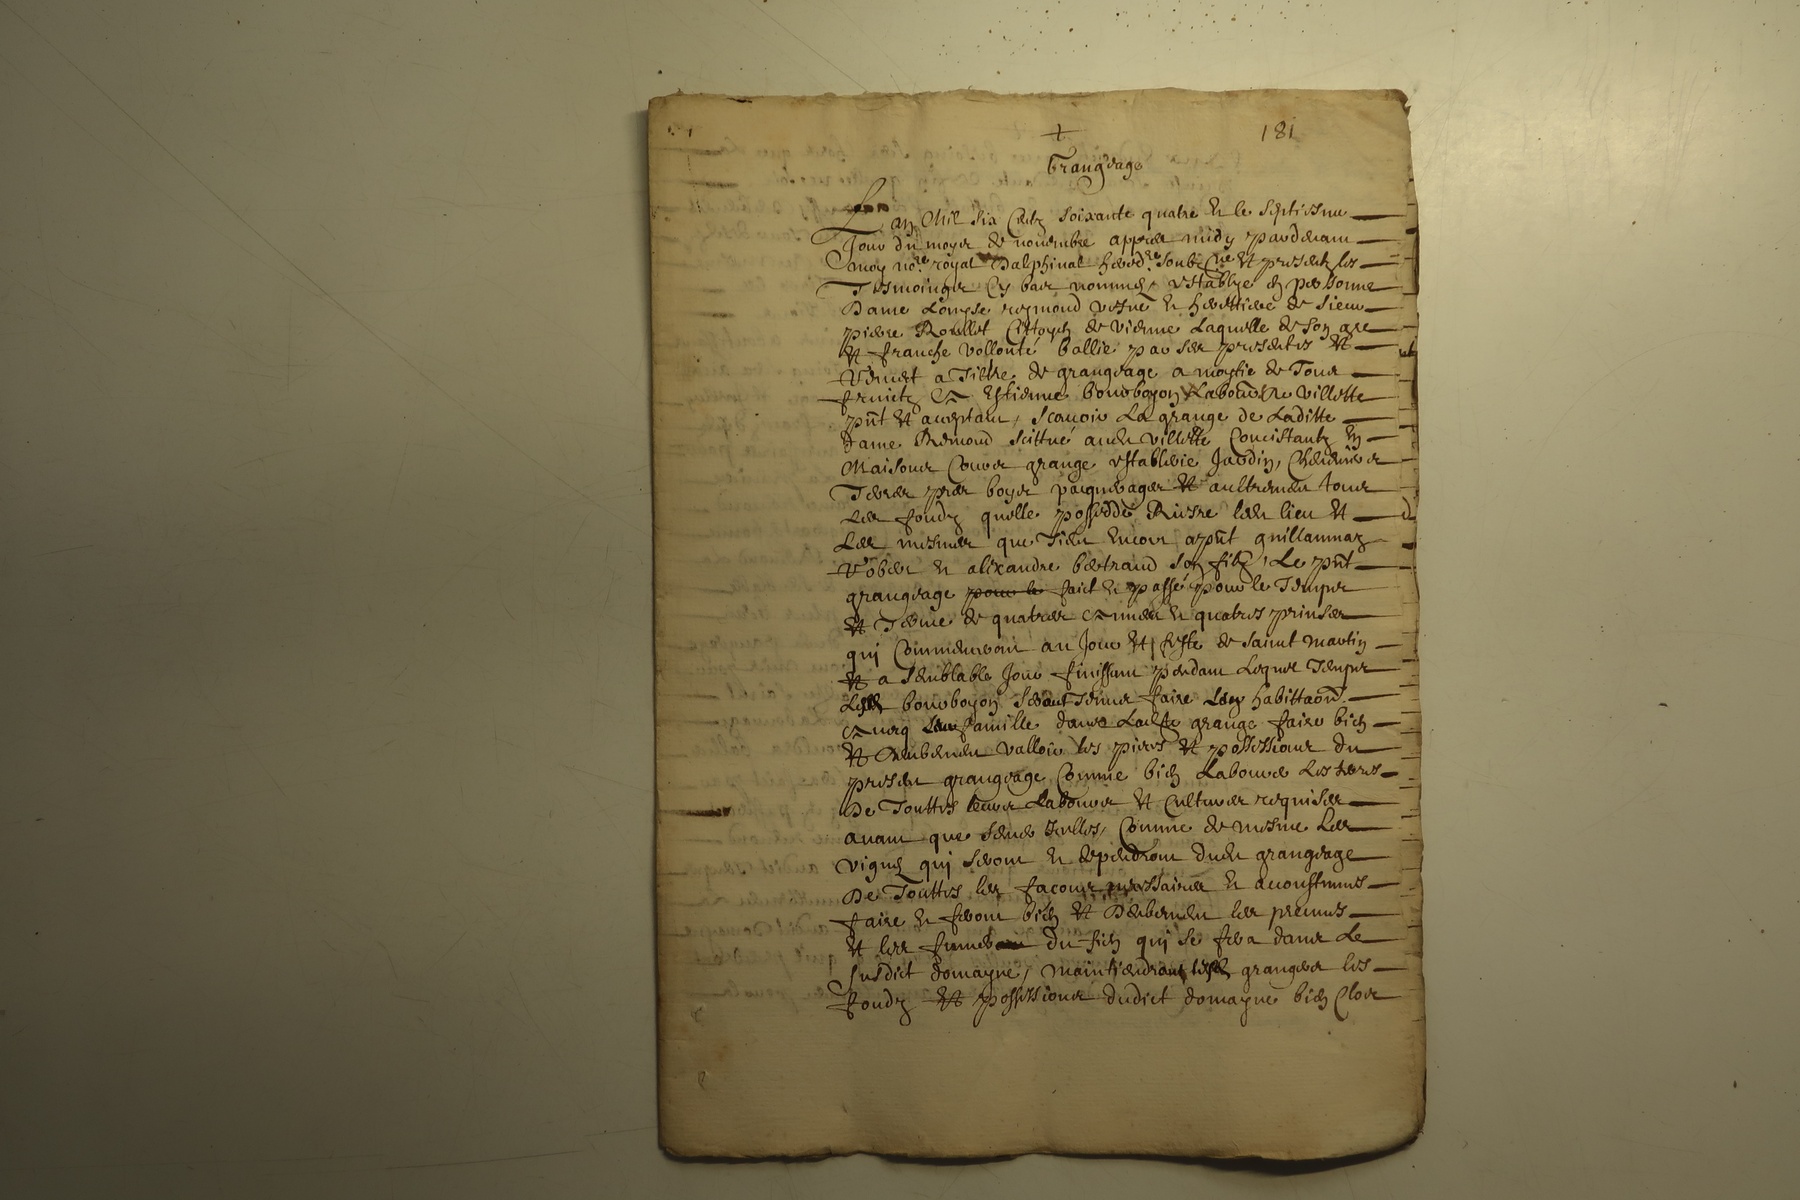 +
181
Grangeage
L'an Mil six Centz soixante quatre et le septiesme
Jour du moys de novembre appres midy pardevant
moy no.re royal Dalphinal hered.re soubz.ne et presentz les
Tesmoingz Cy bas nommes, establye en personne
Dame Louyse reymond vesve et herettiere de sieur
pierre Roullet Cittoyen de vienne Laquelle de son gre
et franche vollonté baillie par ses presentes et
Remet a Tiltre de grangeage a moytie de Tous
fruictz a Estienne bourboyon Laboure villette
pnt et aceptant, scavoir La grange de Laditte
dame Remond scittué aud villette Concistantz en
Maisons Cours grange establerie Jardin, Chenevier
Terres pres boys pasquerages et aultrement tous
Les fondz quelle possedde Riesre led lieu et
Les mesmes que Tient encore a pnt guillaumaz
et alixandre bertrand son filz, Le pnt
grangeage pour le faict et passé pour le Temps
et Terme de quatres annees et quatres prinses
qui Commenceront au Jour et feste de saint martin
et a semblable Jour finissant pendant Lequel Temps
bourboyon Tenus faire habittaon
avecq famille dans Ladte grange faire bien
et deubement valloir les pieces et possessions du
present grangeage Comme bien Labourer Les terres
De Touttes Leurs Labours et Cultures requises
avant que semer Icelles, Comme de mesme Les
vignes qui seront et deppendront dud grangeage
De Touttes les facons necessaires et acoustumes
faire et feront bien et Deubement les preumes
et les du fien qui se fera dans Le
susdict domayne, maintiendront granges les
fondz et possessions dudict domayne bien Clos